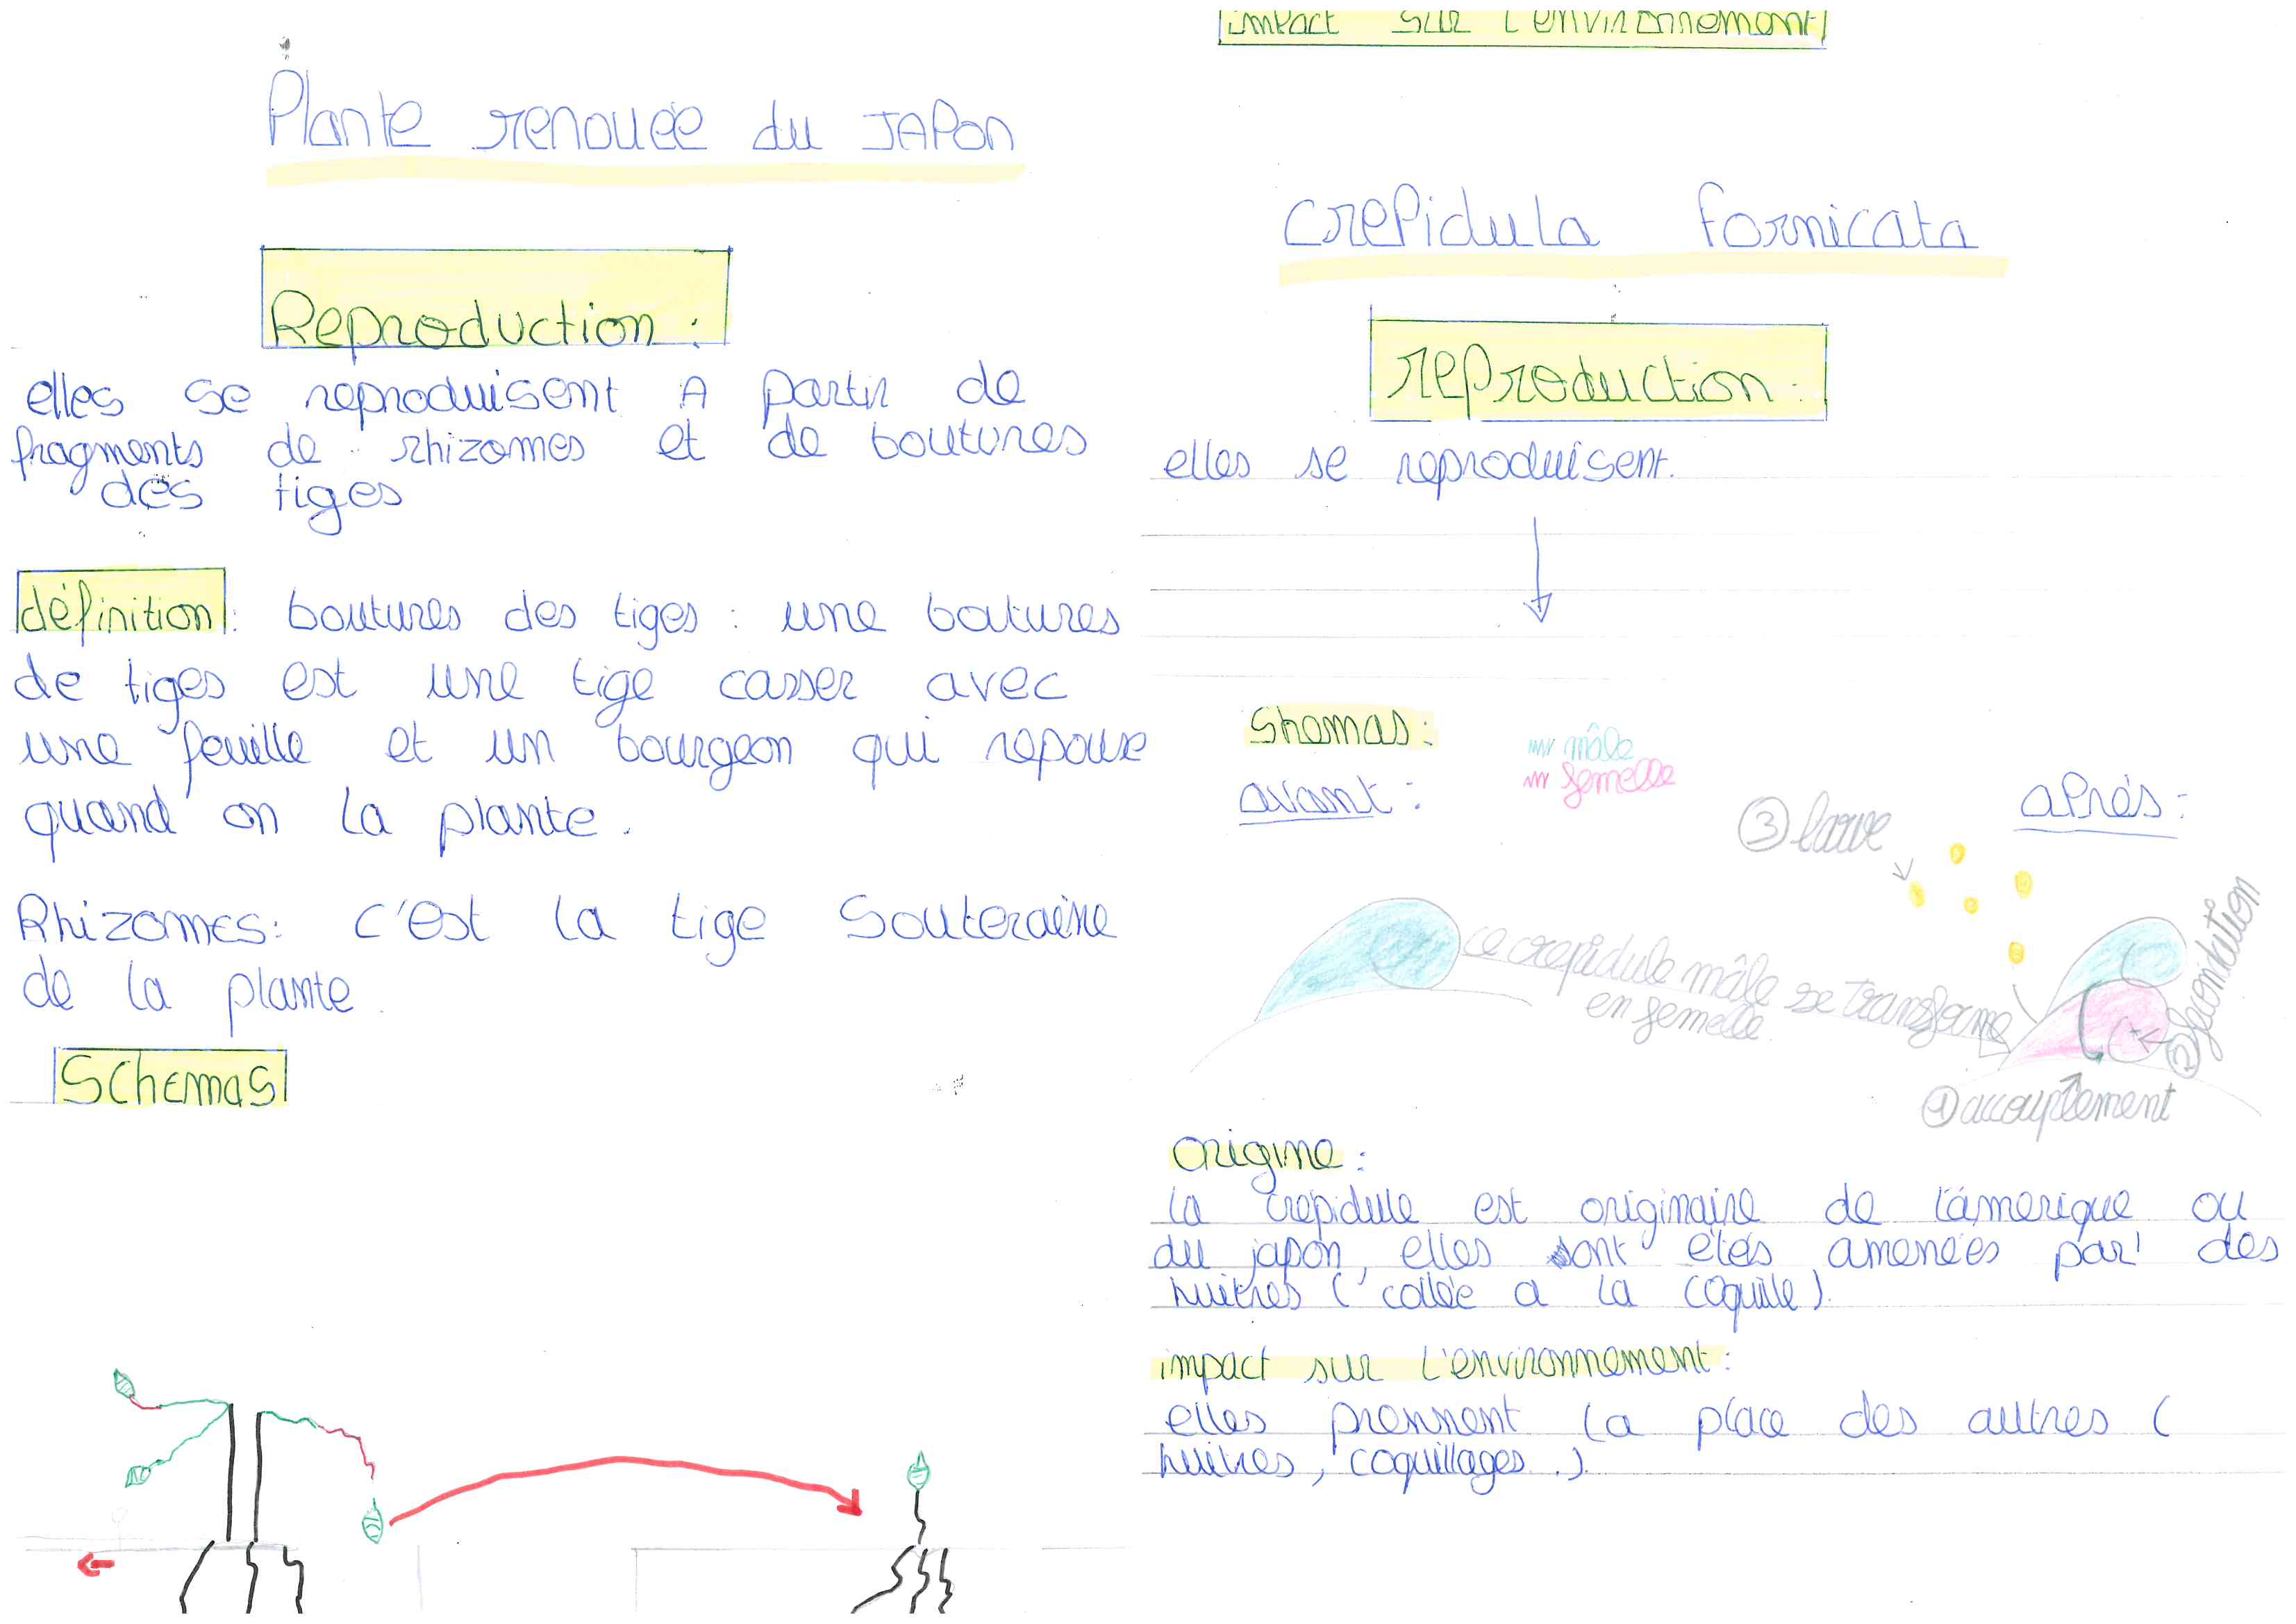 Plante renouée du JAPon
Reproduction :
elles se reproduisent A partir de
fragments de rhizomes et de boutures
des tiges
définition : boutures des tiges : une boutures
de tiges est une tige casser avec
une feuille et un bourgeon qui repouse
quand on la plante.
Rhizomes : c'est la tige souteraine
de la plante
SChemas
impact sur l'environnement
crepidula fornicata
reproduction :
elles se reproduisent.
Shemas :
mâle
femelle
avant :
après :
③ larve
ce crepidule mâle se transforme
en femelle
② fécondation
① accouplement
origine :
la crepidule est originaire de l'amerique ou
du japon, elles sont étés amenées par des
huitres ( collée a la coquille ).
impact sur l'environnement :
elles prennent la place des autres (
huitres, coquillages . ).